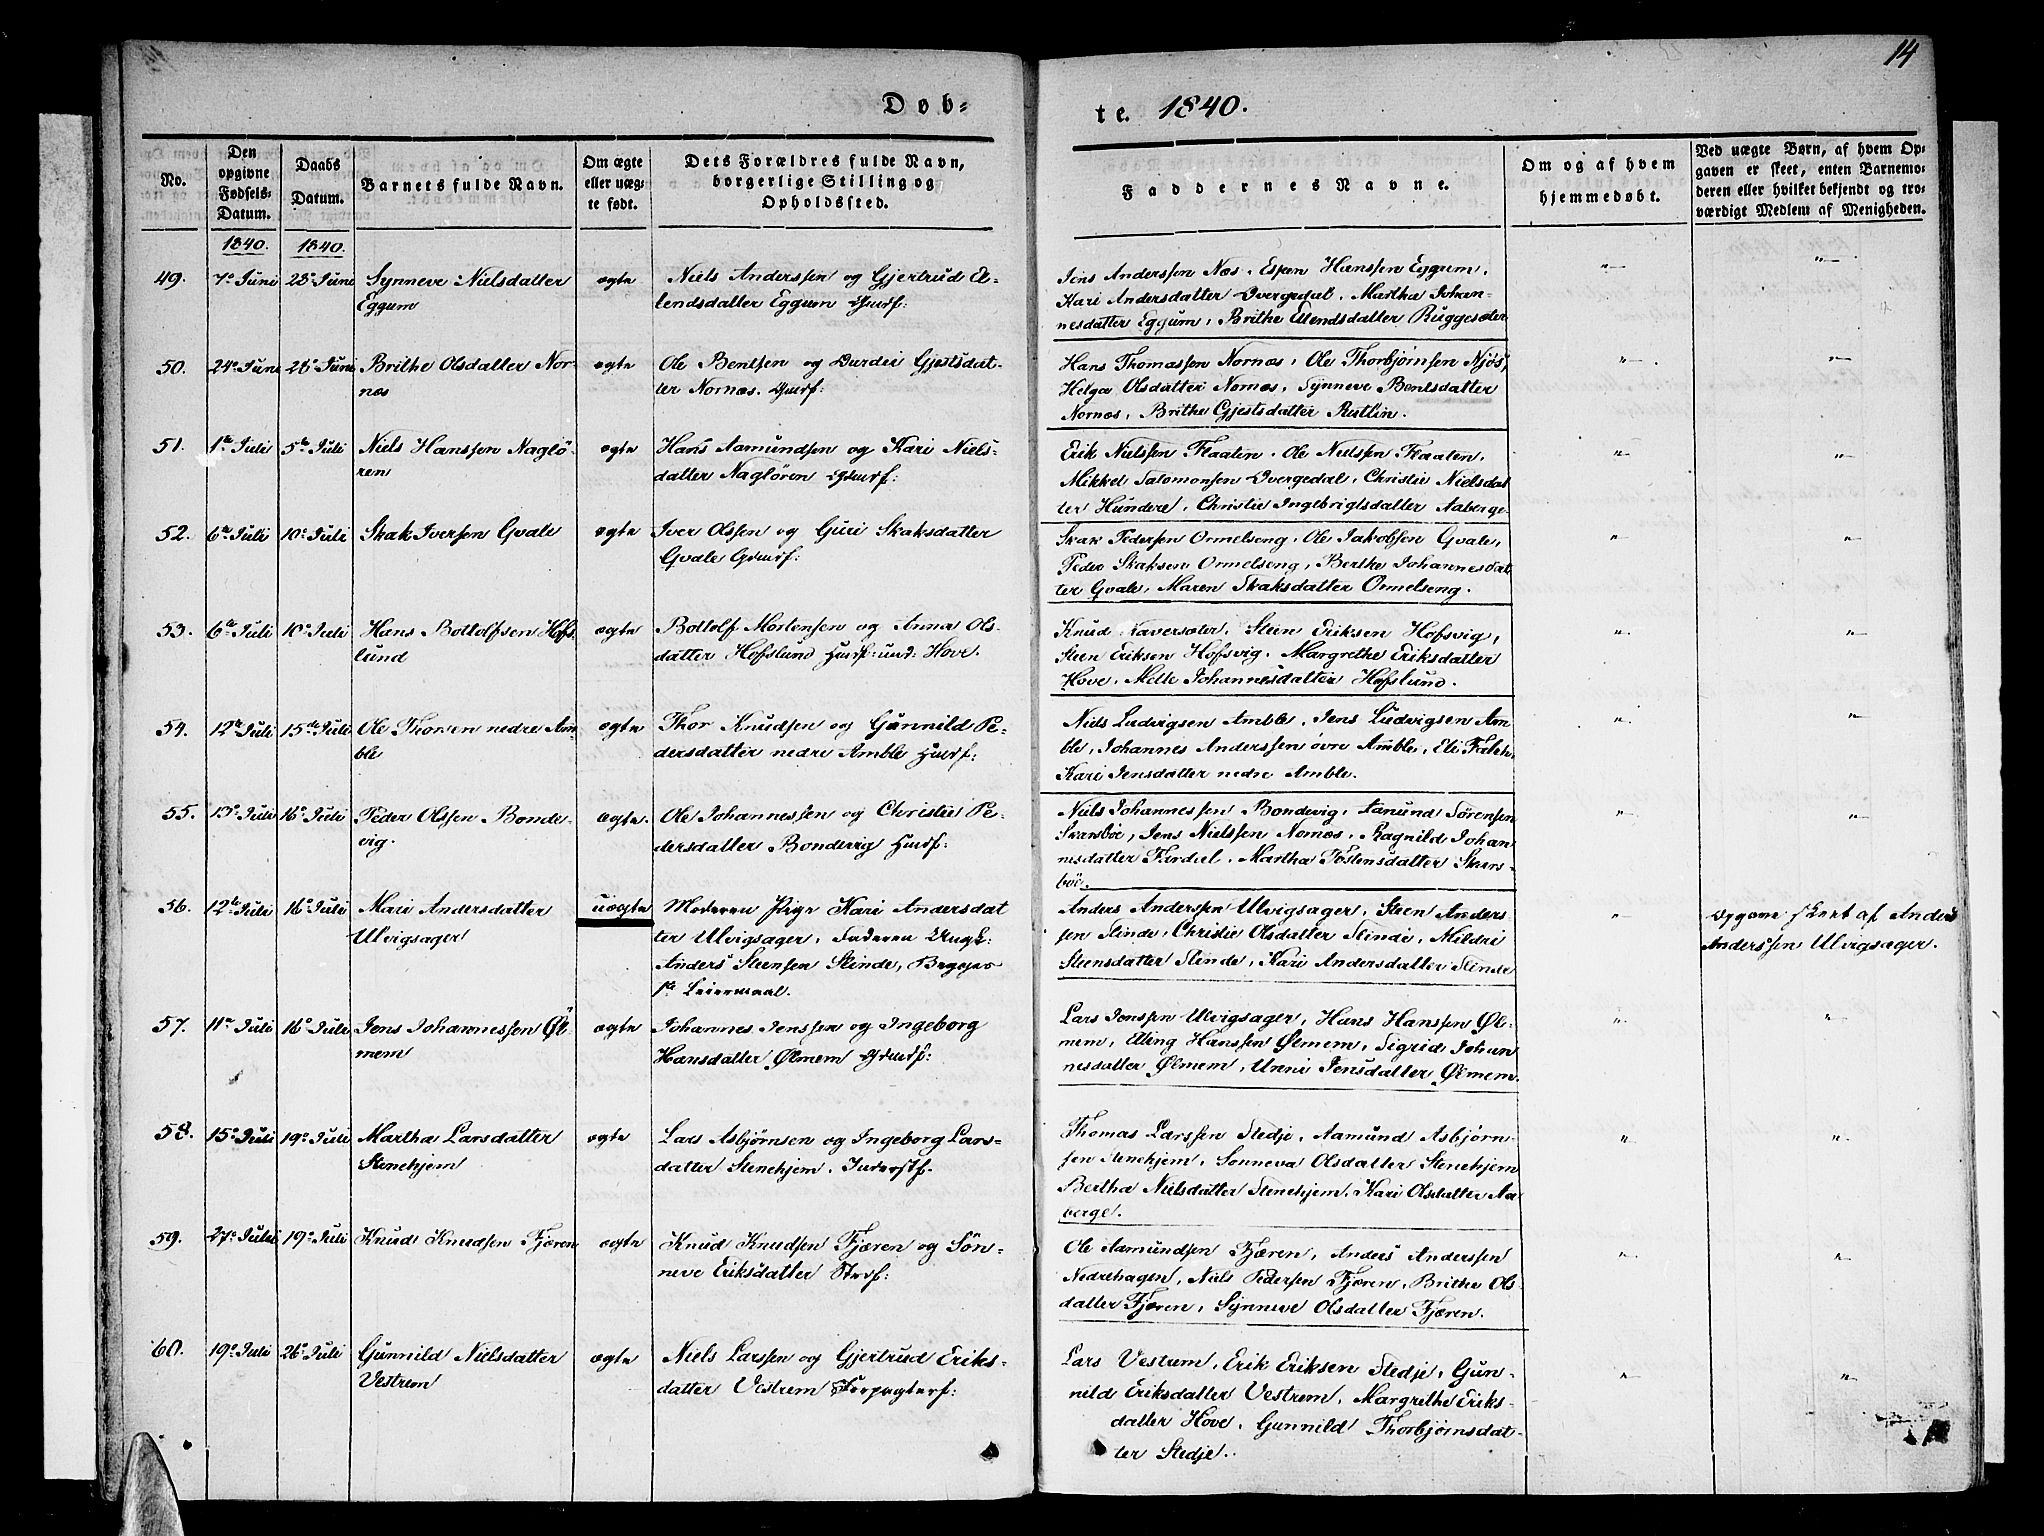 14
Døb-
te. 1840.
No.
Den
opgivne
Fødsels-
Datum.
Daabs
Datum.
Barnets fulde Navn.
Om ægte
eller uæg-
te født.
Dets Forældres fulde Navn,
borgerlige Stilling og
Opholdssted.
Faddernes Navne.
Om og af hvem
hjemmedøbt.
Ved uægte Børn, af hvem Op-
gaven er skeet, enten Barnemo-
deren eller hvilket bekjendt og tro-
værdigt Medlem af Menigheden.
1840. 1840.
49. 7de Juni 28de Juni Synneve Nielsdatter
Eggum
ægte
Niels Anderssen og Gjertrud El-
lendsdatter Eggum Gmdf:
Jens Anderssen Næs. Espen Hanssen Eggum.
Kari Andersdatter Dvergedal. Martha Johan-
nesdatter Eggum, Brithe Ellendsdatter Ruggesæter
50. 24de Juni 28de Juni Brithe Olsdatter Nor-
næs
ægte
Ole Bentsen og Durdei Gjestsdat-
ter Nornæs. Gmdf:
Hans Thomassen Nornæs, Ole Thorbjørnsen Njøs,
Helga Olsdatter Nornæs, Synneve Bentsdatter
Nornæs, Brithe Gjestsdatter Rutlin.
51. 1ste Juli 5te Juli Niels Hanssen Naglø-
ren
ægte
Hans Aamundsen og Kari Niels-
datter Nagløren Gmdf:
Erik Nielssen Flaaten. Ole Nielssen Flaaten,
Mikkel Salomonsen Dvergedal, Christie Nielsdat
ter Hundere, Christie Ingebrigtsdatter Aaberge
52. 6te Juli 10de Juli Skak Iversen Qvale
ægte
Iver Olssen og Guri Skaksdatter
Qvale Gmdf:
Skak Pedersen Ormelseng, Ole Jakobsen Qvale,
Peder Skaksen Ormelseng, Berthe Johannesdat
ter Qvale, Maren Skaksdatter Ormelseng.
53. 6te Juli 10de Juli Hans Bottolfsen Hofs
lund
ægte
Bottolf Mortensen og Anna Ols-
datter Hofslund Husf: und: Hove.
Knud Kaversæter. Steen Eriksen Hofsvig,
Steen Eriksen Hofsvig. Margrethe Eriksdatter
Hove, Mette Johannesdatter Hofslund.
54. 12te Juli 15de Juli Ole Thorsen nedre Am-
ble
ægte
Thor Knudsen og Gunnild Pe-
dersdatter nedre Amble Husf:
Niels Ludvigsen Amble, Jens Ludvigsen Am
ble, Johannes Anderssen øvre Amble, Eli Faleh,
Kari Jensdatter nedre Amble.
55. 13de Juli 16de Juli Peder Olssen Bonde-
vig.
ægte.
Ole Johannessen og Christie Pe-
dersdatter Bondevig Husf:
Niels Johannessen Bondevig, Aamund Sørensen
Skansbøe, Jens Nielssen Nornæs, Ragnild Johan
nesdatter Fardal, Martha Tostensdatter Skans-
bøe.
56. 12te Juli 16de Juli Mari Andersdatter
Ulvigsager
uægte
Moderen Pige Kari Andersdat
ter Ulvigsager, Faderen Ungk:
Anders Steensen Slinde, Begges
1ste Leiermaal.
Anders Anderssen Ulvigsager, Steen Anders-
sen Slinde, Christie Olsdatter Slinde, Mildri
Steensdatter Slinde, Kari Andersdatter Slinde
Opgave skeet af Anders
Anderssen Ulvigsager.
57. 11te Juli 16de Juli Jens Johannessen Øl-
mem
ægte
Johannes Jenssen og Ingeborg
Hansdatter Ølmem Gmdf:
Lars Jenssen Ulvigsager, Hans Hanssen Øl-
mem, Elling Hanssen Ølmem, Sigrid Johan
nesdatter Ølmem, Unni Jensdatter Ølmem.
58. 15de Juli 19de Juli Martha Larsdatter
Stenehjem
ægte
Lars Asbjørnsen og Ingeborg Lars-
datter Stenehjem. Inderstf.
Thomas Larssen Stedje, Aamund Asbjørn-
sen Stenehjem, Sønneva Olsdatter Stenehjem
Bertha Nielsdatter Stenehjem. Kari Olsdatter Aa-
berge.
59. 27de Juli 19de Juli Knud Knudsen Fjæren
ægte
Knud Knudsen Fjæren og Søn-
neve Eriksdatter Strf:
Ole Aamundsen Fjæren, Anders Anderssen
Nedrehagen, Niels Pedersen Fjæren, Brithe Ols-
datter Fjæren, Synneve Olsdatter Fjæren.
60. 19de Juli 26de Juli Gunnild Nielsdatter
Vestrem
ægte
Niels Larssen og Gjertrud Eriks-
datter Vestrem Forpagterf:
Lars Vestrem, Erik Eriksen Stedje, Gun-
nild Eriksdatter Vestrem, Margrethe Eriks-
datter Hove, Gunnild Thorbjørnsdat-
ter Stedje.